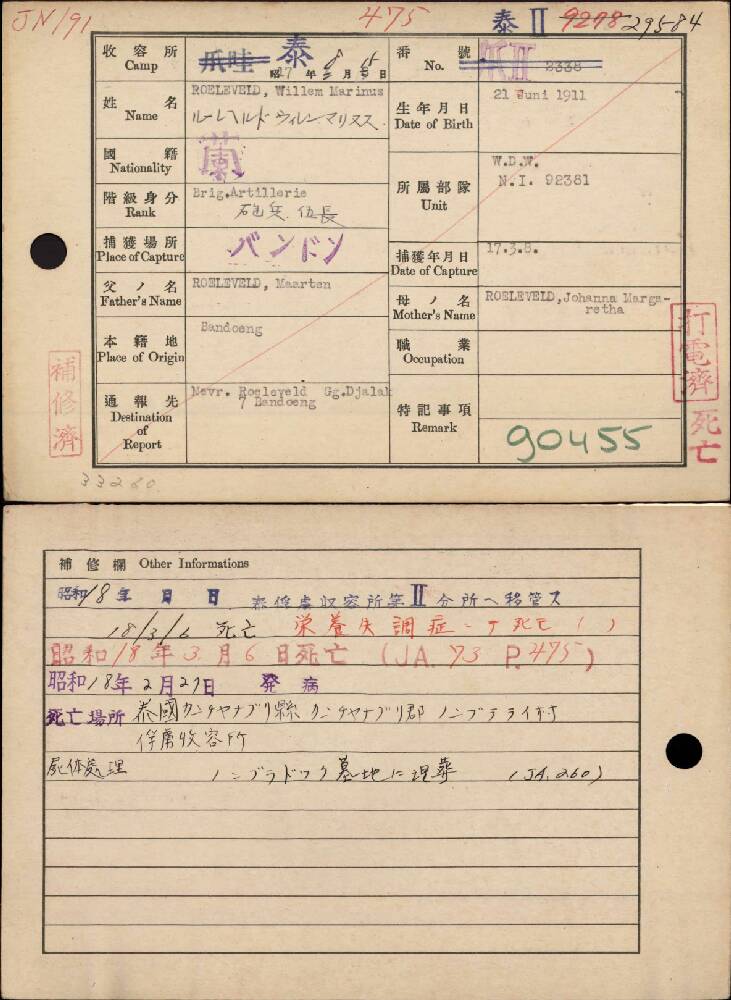 JN/91
475
泰 II 9278 29584
收容所 Camp 爪哇 泰
昭 17 年 8 月 15 日
番號 No. 爪II 2338
姓名 Name ROELEVELD, Willem Marinus
ルーレヘルド ウィレン マリヌス
生年月日 Date of Birth 21 Juni 1911
國籍 Nationality 蘭
階級身分 Rank Brig.Artillerie
砲兵 伍長
所屬部隊 Unit W.D.W.
N.I. 92381
捕獲場所 Place of Capture バンドン
捕獲年月日 Date of Capture 17.3.8.
父ノ名 Father's Name ROELEVELD, Maarten
母ノ名 Mother's Name ROELEVELD, Johanna Marga-
retha
本籍地 Place of Origin Bandoeng
職業 Occupation
通報先 Destination of Report Mevr. Roeleveld Gg.Djalak
7 Bandoeng
特記事項 Remark 90455
補修濟
打電濟
死亡
33260
補修欄 Other Informations
昭和18年 月 日 泰俘虜収容所第II分所へ移管ス
18/3/6 死亡 栄養失調症ニテ死亡 ( )
昭和18年3月6日死亡 (JA. 73 P.475)
昭和18年2月27日 発病
死亡場所 泰國カンチヤナブリ縣カンチヤナブリ郡ノンプテライ村
俘虜收容所
屍体處理 ノンプラドック墓地に埋葬 (JA.260)